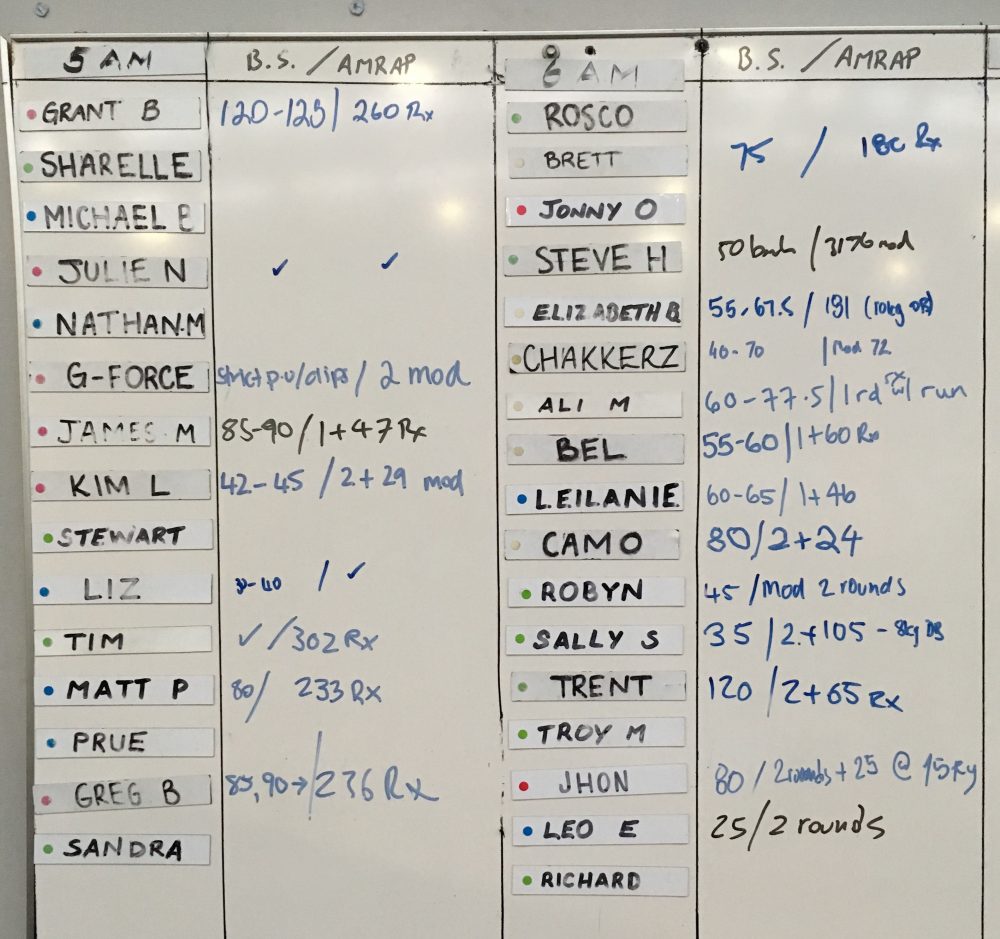 5 AM B.S. / AMRAP
GRANT B 120-125/ 260 Rx
SHARELLE
MICHAEL B
JULIE N ✓ ✓
NATHAN.M
G-FORCE strict p-u/dips / 2 mod
JAMES M 85-90/1+47 Rx
KIM L 42-45 /2+29 mod
STEWART
LIZ / ✓
TIM ✓ /302 Rx
MATT P 80/ 233 Rx
PRUE
GREG B 85,90→/236 Rx
SANDRA
6 AM B.S. / AMRAP
ROSCO
BRETT 75 / 180 Rx
JONNY O
STEVE H 50 / mod
ELIZABETH B 55-67.5 / 191 (10kg DB)
CHAKKERZ 40-70 / Mod 72
ALI M 60-77.5/1rd run
BEL 55-60/1+60 Rx
LEILANIE 60-65/ 1+46
CAMO 80/2+24
ROBYN 45 /Mod 2 rounds
SALLY S 35 /2+105 - 8kg DB
TRENT 120 /2+65 Rx
TROY M
JHON 80 / 2 rounds + 25 @
LEO E 25/2 rounds
RICHARD